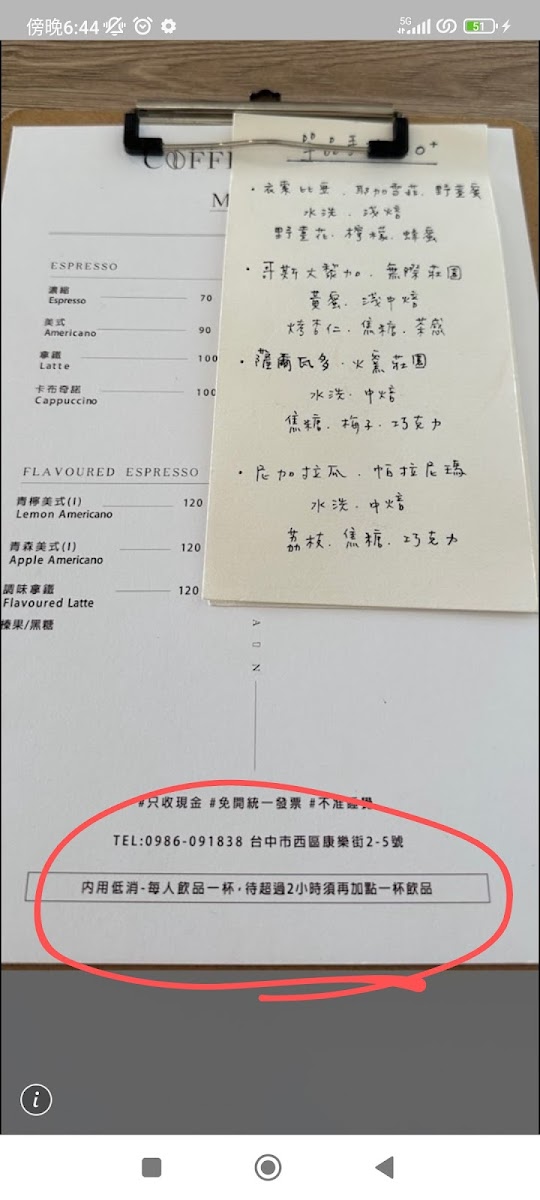 傍晚6:44
5G
51
COFFE
M
單品手 0+
・衣索比亞.耶加雪菲.野薑蜜
水洗.淺焙
野薑花.檸檬.蜂蜜
・哥斯大黎加.無際莊園
黃蜜.淺中焙
烤杏仁.焦糖.茶感
・薩爾瓦多.火窯莊園
水洗.中焙
焦糖.梅子.巧克力
・尼加拉瓜.帕拉尼瑪
水洗.中焙
荔枝.焦糖.巧克力
ESPRESSO
濃縮 70
Espresso
美式 90
Americano
拿鐵 100
Latte
卡布奇諾 100
Cappuccino
FLAVOURED ESPRESSO
青檸美式(I) 120
Lemon Americano
青森美式(I) 120
Apple Americano
調味拿鐵 120
Flavoured Latte
榛果/黑糖
A D N
#只收現金 #免開統一發票 #不准睡覺
TEL:0986-091838 台中市西區康樂街2-5號
內用低消-每人飲品一杯,待超過2小時須再加點一杯飲品
i